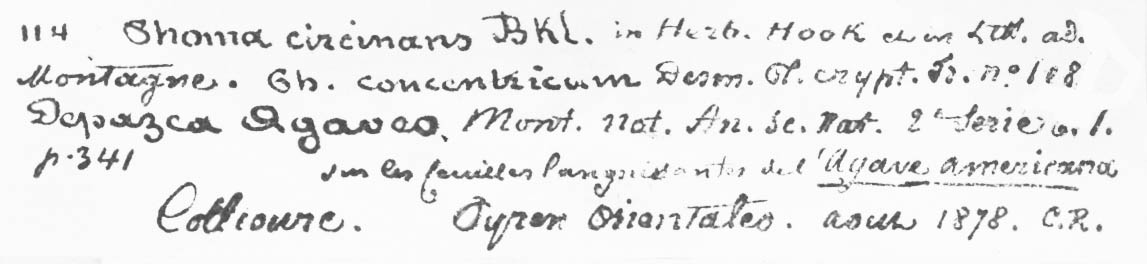 114 Phoma circinans Bkl. in Herb. Hook et in Litt. ad.
Montagne. Ph. concentricum Desm. Pl. crypt. Fr. no 108
Depazea Agaves. Mont. not. An. Sc. Nat. 2e Serie 1.
p. 341 sur les feuilles languissantes de l'Agave americana
Collioure. Pyren Orientales. aout 1878. C.R.